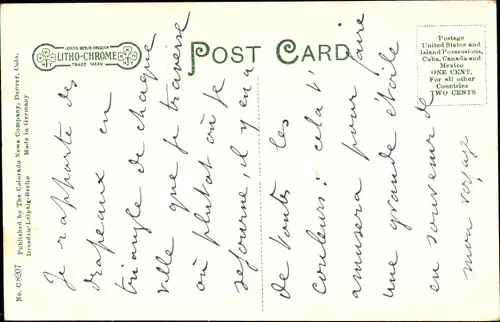 LEIPZIG BERLIN DRESDEN
LITHO-CHROME
TRADE MARK
POST CARD
Postage
United States and
Island Possessions,
Cuba, Canada and
Mexico
ONE CENT.
For all other
Countries
TWO CENTS
No. C 8207 Published by The Colorado News Company, Denver, Colo.
Dresden-Leipzig-Berlin Made in Germany
Je rapporte des
drapeaux en
triangle de chaque
ville que je traverse
où plutot où je
séjourne, il y en a
de toutes les
couleurs : cela t'
amusera pour faire
une grande étoile
en souvenir de
mon voyage